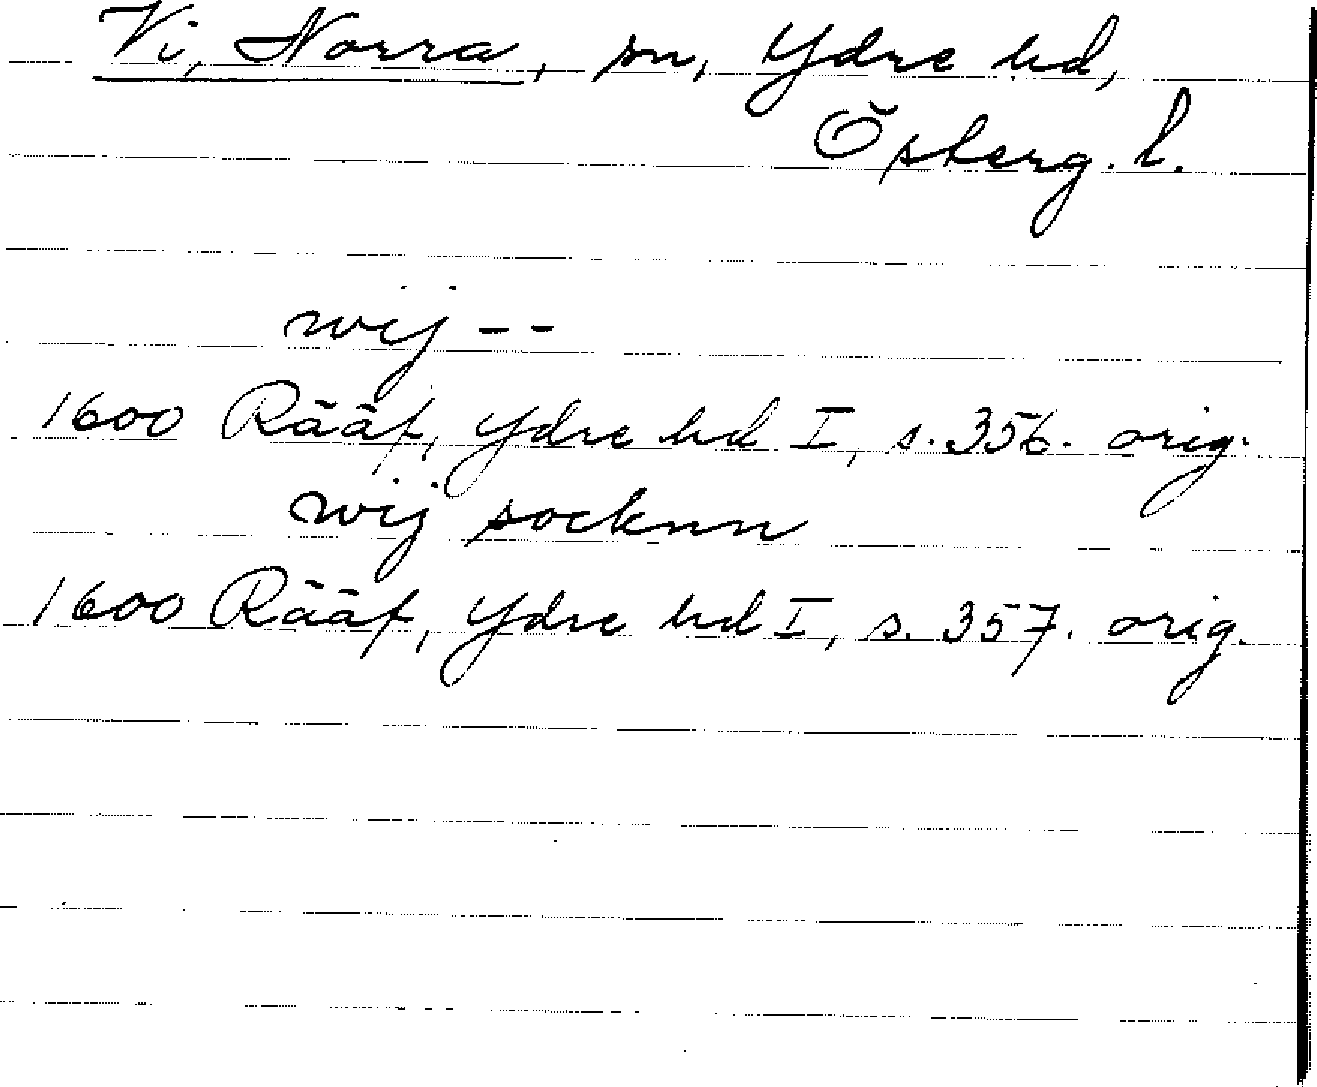 Vi, Norra, sn, Ydre hd,
Österg. l.
wij --
1600 Rääf, Ydre hd I, s. 356. orig.
wij socknn
1600 Rääf, Ydre hd I, s. 357. orig.